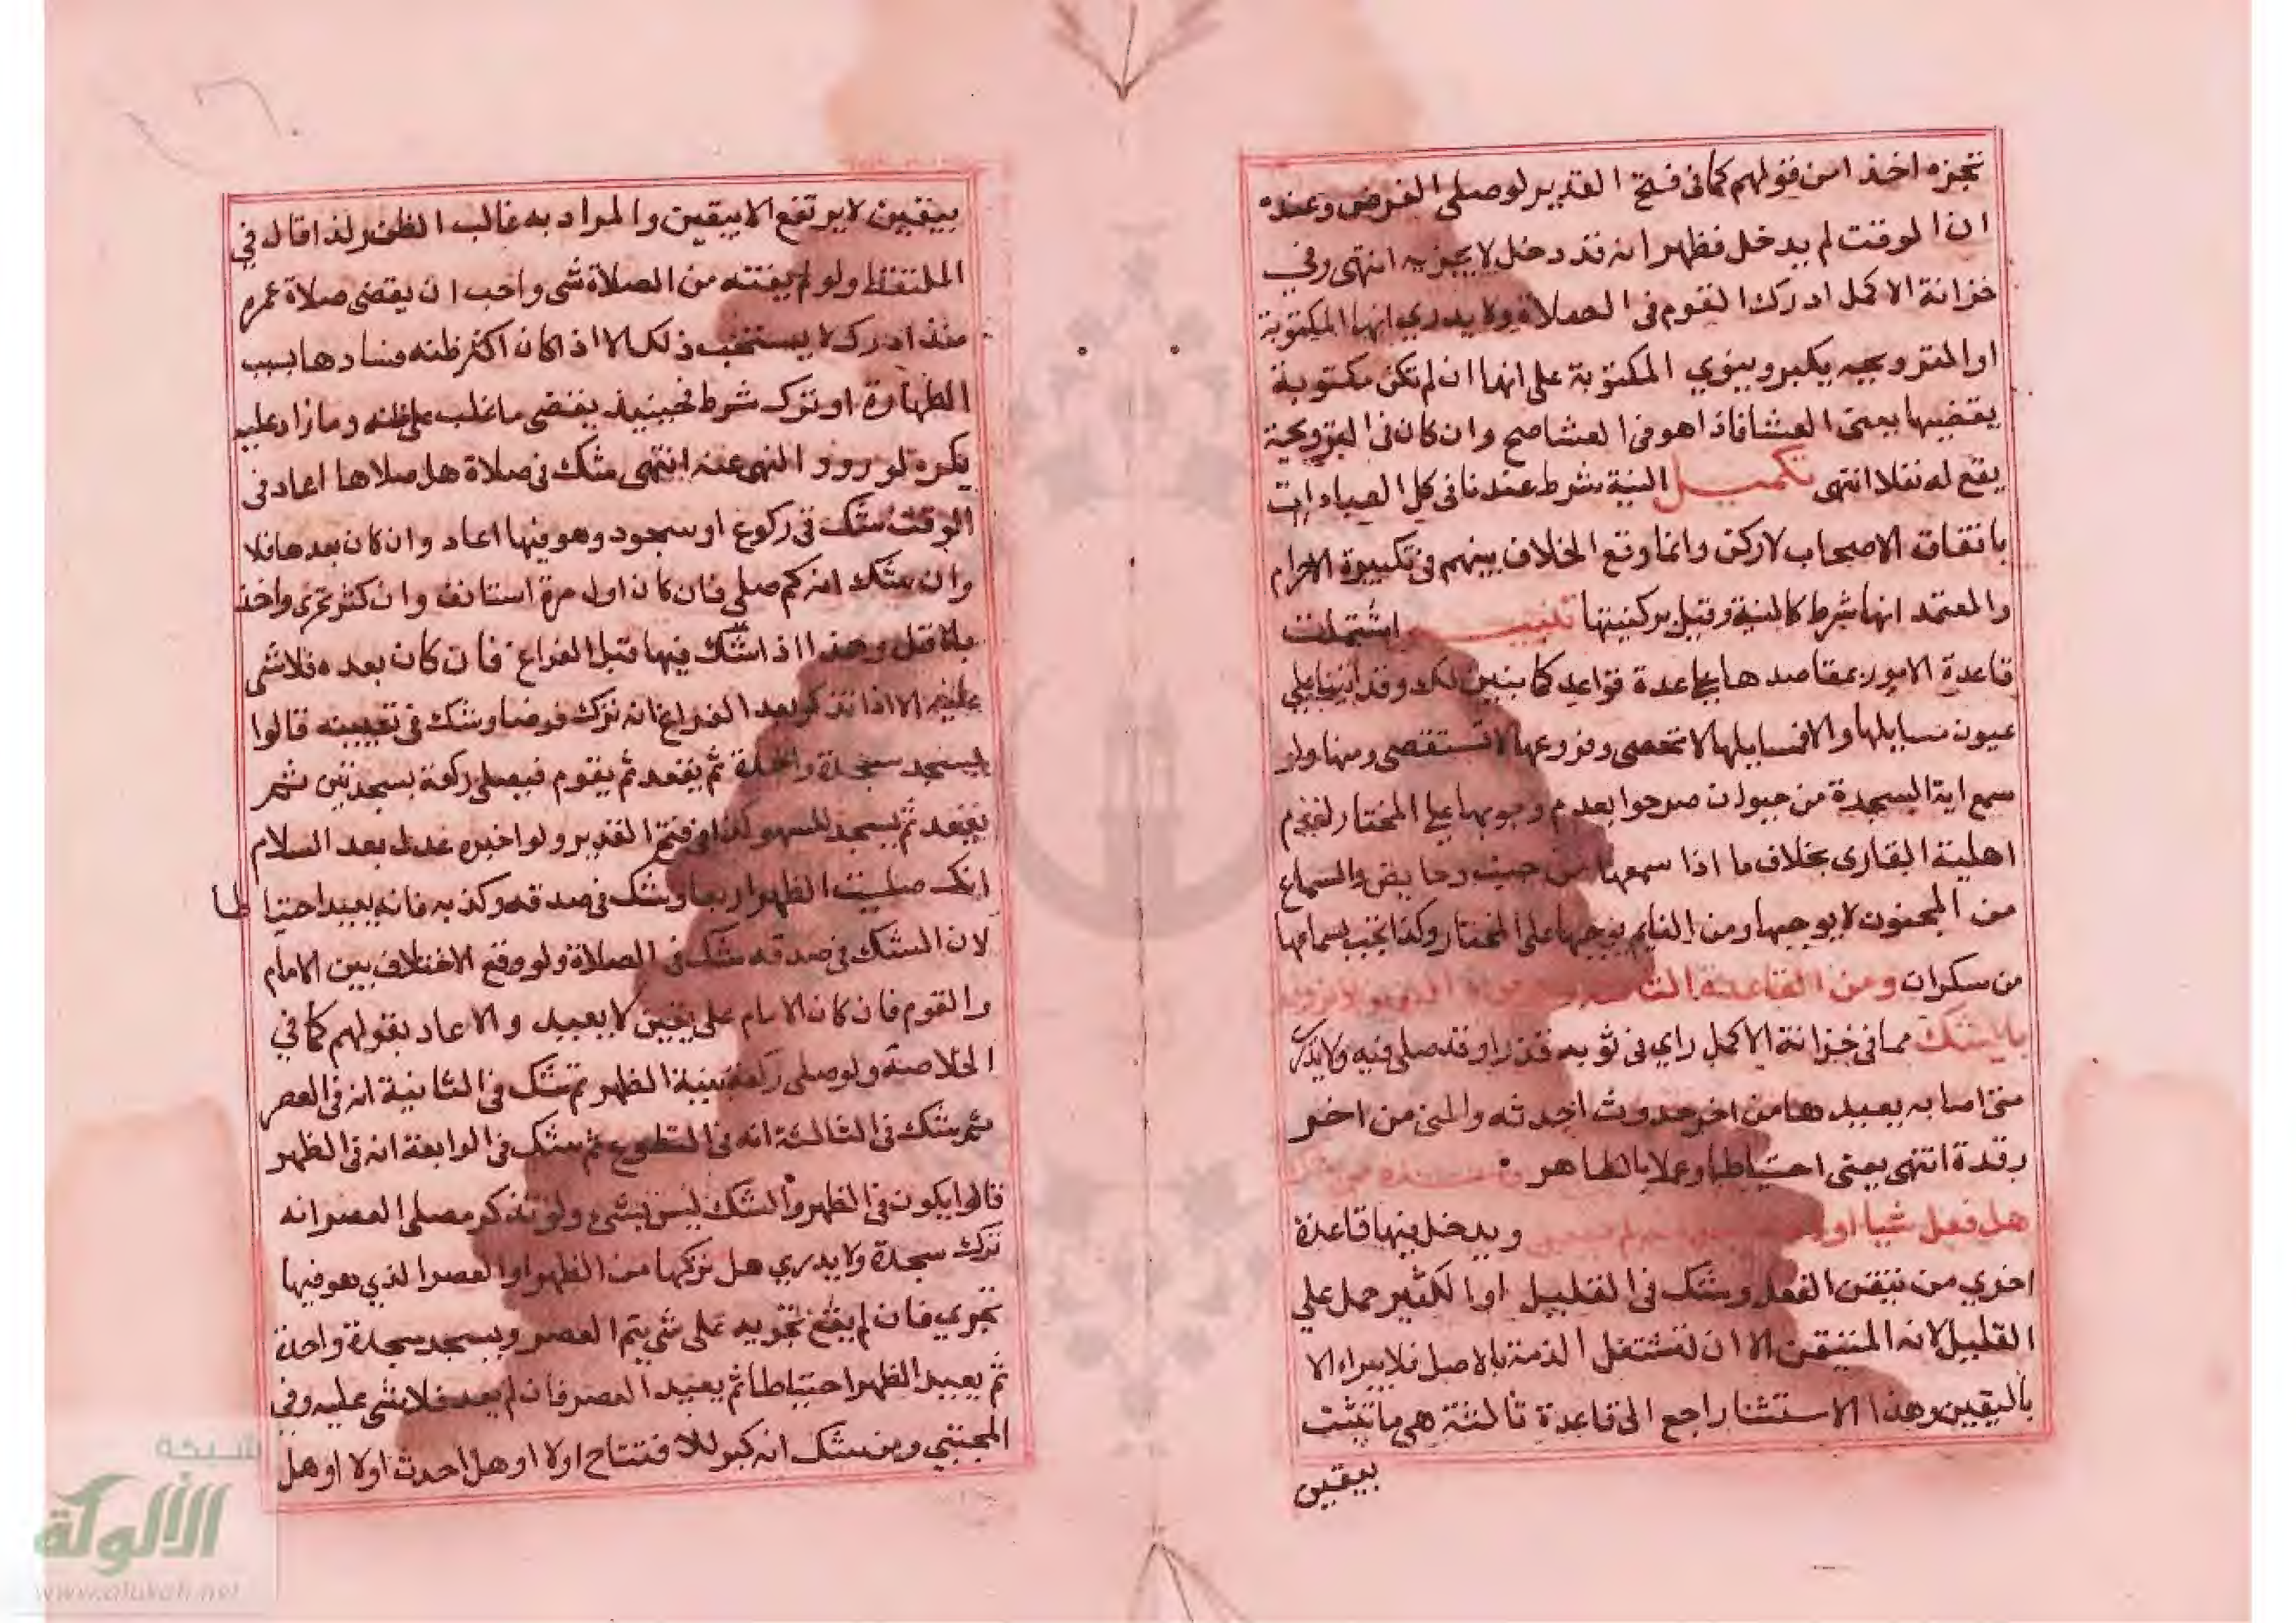 تجزه اخذا من قولهم كما في فتح القدير لو صلى الفرض وعنده
ان الوقت لم يدخل فظهر انه قد دخل لا يجزيه انتهى وفي
خزانة الاكمل ادرك القوم في الصلاة ولا يدري انها المكتوبة
او الترويحه يكبر وينوي المكتوبة على انها ان لم تكن مكتوبة
يقضيها يعني العشا فاذا هو في العشا صح وان كان في الترويحة
يقع له نفلا انتهى تكميل النية شرط عندنا في كل العبادات
باتفاق الاصحاب لا ركن وانما وقع الخلاف بينهم في تكبيرة الاحرام
والمعتمد انها شرط كالنية وقيل بركنيتها تنبيه اشتملت
قاعدة الامور بمقاصدها على عدة قواعد كما تبين لك وقد اتينا على
عيون مسايلها والا فمسايلها لا تحصى وفروعها لا تستقصى ومنها ولو
سمع اية السجدة من حيوان صرحوا بعدم وجوبها على المختار لعدم
اهلية القارى بخلاف ما اذا سمعها من جنب وحايض والسماع
من المجنون لا يوجبها ومن النايم يوجبها على المختار وكذا تجب بسماعها
من سكران ومن القاعدة
بالشك مما في خزانة الاكمل راي في ثوبه قذرا وقد صلى فيه ولا يدري
متى اصابه يعيدها من اخر حدوث احدثه والمني من اخر
رقدة انتهى يعني احتياطا وعملا بالظاهر
هل فعل شيا او لا ويدخل فيها قاعدة
اخري من تيقن الفعل وشك في القليل او الكثير حمل علي
القليل لانه المتيقن الا ان تشتغل الذمة بالاصل فلا يبراء الا
باليقين وهذا الاستثنا راجع الى قاعدة ثالثة هي ما ثبت
بيقين
بيقين لا يرتفع الا بيقين والمراد به غالب الظن ولذا قال في
الملتقط ولو لم يفته من الصلاة شي واحب ان يقضي صلاة عمره
منذ ادرك لا يستحب ذلك الا اذا كان اكثر ظنه فسادها بسبب
الطهارة او ترك شرط فحينيذ يقضي ما غلب على ظنه وما زاد عليه
يكره لورود النهي عنه انتهى شك في صلاة هل صلاها اعاد في
الوقت شك في ركوع او سجود وهو فيها اعاد وان كان بعدها فلا
وان شك انه كم صلى فان كان اول مرة استانف وان كثر تحرى واخذ
بالاقل وهذا اذا شك فيها قبل الفراغ فان كان بعده فلا شي
عليه الا اذا تذكر بعد الفراغ انه ترك فرضا وشك في تعيينه قالوا
يسجد سجدة واحدة ثم يقعد ثم يقوم فيصلي ركعة بسجدتين ثم
يقعد ثم يسجد للسهو كذا في فتح القدير ولو اخبره عدل بعد السلام
انك صليت الظهر اربعا وشك في صدقه وكذبه فانه يعيد احتياطا
لان الشك في صدقه شك في الصلاة ولو وقع الاختلاف بين الامام
والقوم فان كان الامام على يقين لا يعيد والا عاد بقولهم كما في
الخلاصة ولو صلى ركعة بنية الظهر ثم شك في الثانية انه في العصر
ثم شك في الثالثة انه في التطوع ثم شك في الرابعة انه في الظهر
قالوا يكون في الظهر والشك ليس بشيء ولو تذكر مصلي العصر انه
ترك سجدة ولا يدري هل تركها من الظهر او العصر الذي هو فيها
تحري فان لم يقع تحريه على شي يتم العصر ويسجد سجدة واحدة
ثم يعيد الظهر احتياطا ثم يعيد العصر فان لم يعد فلا شي عليه وفي
المجتبي ومن شك انه كبر للافتتاح اولا او هل احدث اولا او هل
شبكة
الألوكة
www.alukah.net